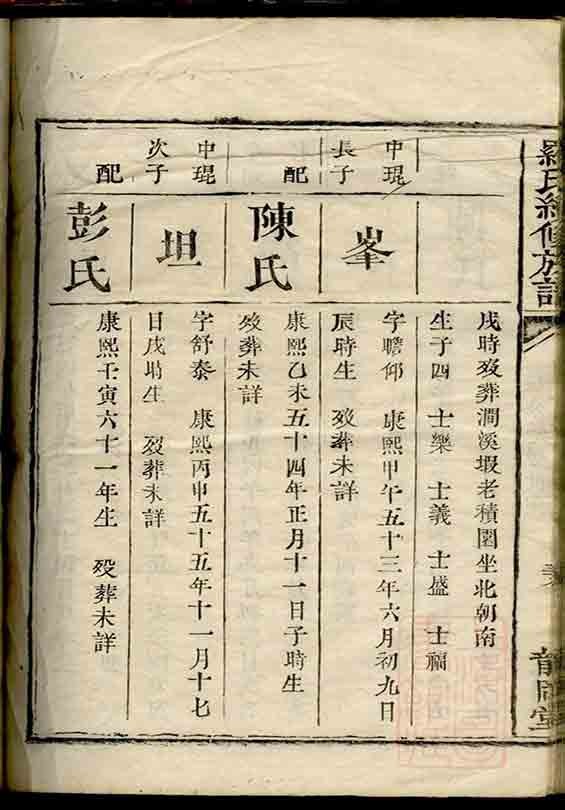 羅氏續修族譜
戌時歿葬澗溪塅老積園坐北朝南
生子四　士樂　士義　士盛　士福
中琨長子
峯
字瞻仰　康熙甲午五十三年六月初九日
辰時生　歿葬未詳
配
陳氏
康熙乙未五十四年正月十一日子時生
歿葬未詳
中琨次子
坦
字舒泰　康熙丙申五十五年十一月十七
日戌時生　歿葬未詳
配
彭氏
康熙壬寅六十一年生　歿葬未詳